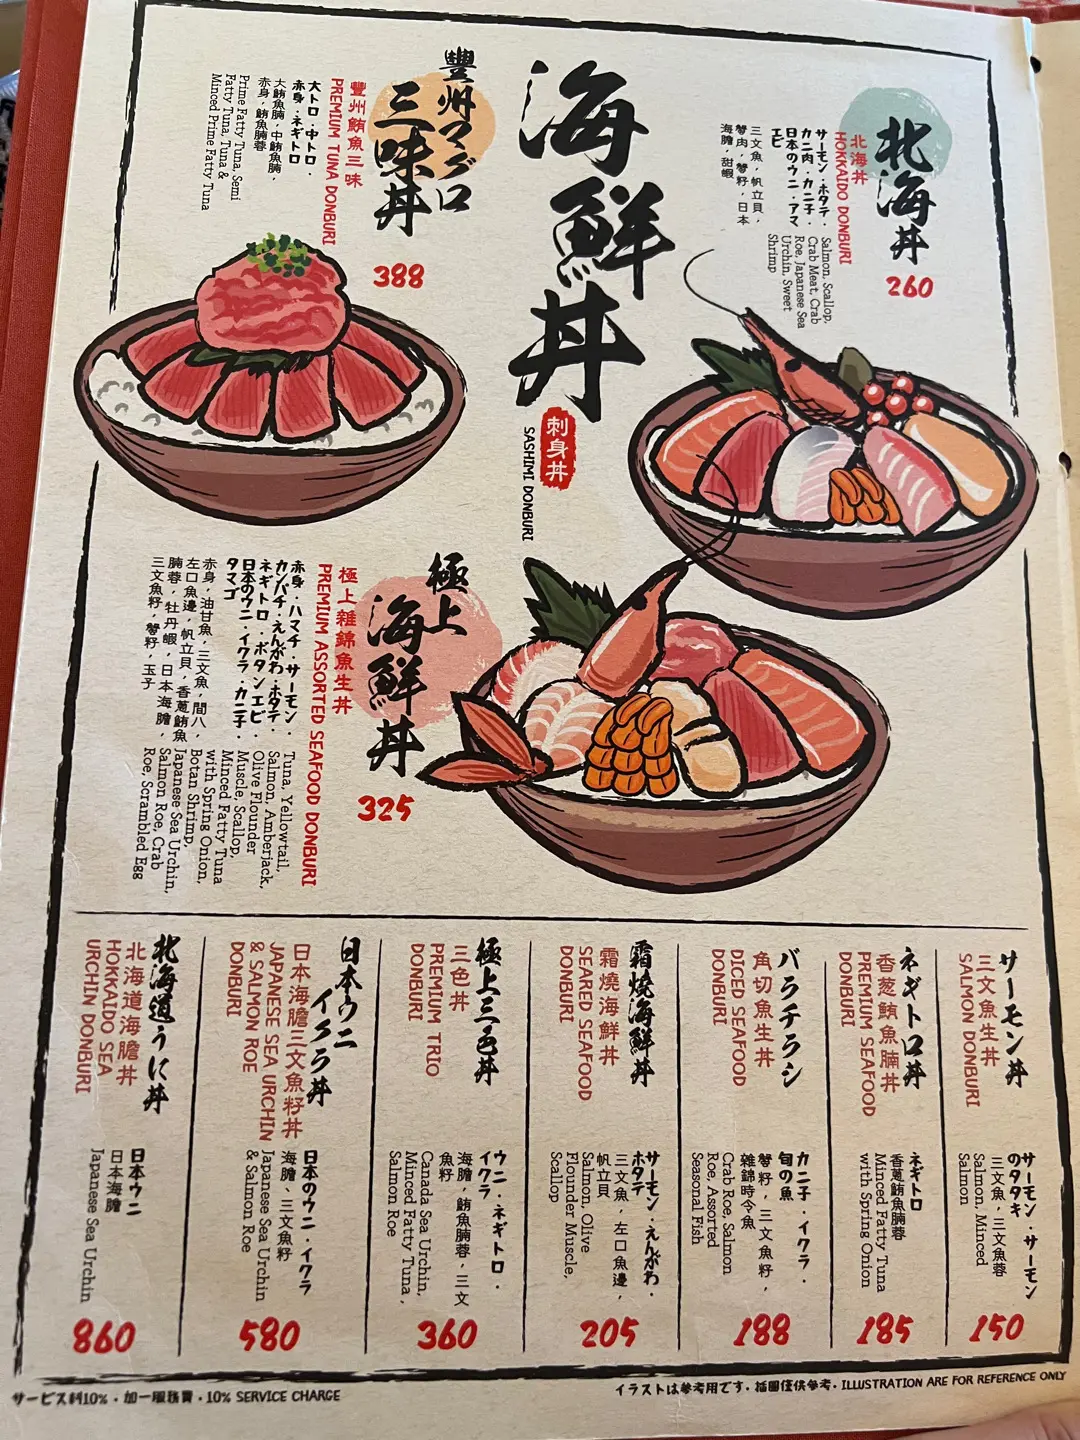 海鮮丼
刺身丼
SASHIMI DONBURI
北海丼
北海丼
HOKKAIDO DONBURI
サーモン・ホタテ・
カニ肉・カニ子・
日本のウニ・アマ
エビ
三文魚，帆立貝，
蟹肉，蟹籽，日本
海膽，甜蝦
Salmon, Scallop,
Crab Meat, Crab
Roe, Japanese Sea
Urchin, Sweet
Shrimp
260
豐州マグロ
三味丼
豐州鮪魚三味
PREMIUM TUNA DONBURI
大トロ・中トロ・
赤身・ネギトロ
大鮪魚腩，中鮪魚腩，
赤身，鮪魚腩蓉
Prime Fatty Tuna, Semi
Fatty Tuna, Tuna &
Minced Prime Fatty Tuna
388
極上
海鮮丼
極上雜錦魚生丼
PREMIUM ASSORTED SEAFOOD DONBURI
赤身・ハマチ・サーモン・
カンパチ・えんがわ・ホタテ・
ネギトロ・ボタンエビ・
日本のウニ・イクラ・カニ子・
タマゴ
赤身，油甘魚，三文魚，間八，
左口魚邊，帆立貝，香蔥鮪魚
腩蓉，牡丹蝦，日本海膽，
三文魚籽，蟹籽，玉子
Tuna, Yellowtail,
Salmon, Amberjack,
Olive Flounder
Muscle, Scallop,
Minced Fatty Tuna
with Spring Onion,
Botan Shrimp,
Japanese Sea Urchin,
Salmon Roe, Crab
Roe, Scrambled Egg
325
サーモン丼
三文魚生丼
SALMON DONBURI
サーモン・サーモン
のタタキ
三文魚，三文魚蓉
Salmon, Minced
Salmon
150
ネギトロ丼
香葱鮪魚腩丼
PREMIUM SEAFOOD
DONBURI
ネギトロ
香蔥鮪魚腩蓉
Minced Fatty Tuna
with Spring Onion
185
バラチラシ
角切魚生丼
DICED SEAFOOD
DONBURI
カニ子・イクラ・
旬の魚
蟹籽，三文魚籽，
雜錦時令魚
Crab Roe, Salmon
Roe, Assorted
Seasonal Fish
188
霜燒海鮮丼
霜燒海鮮丼
SEARED SEAFOOD
DONBURI
サーモン・えんがわ・
ホタテ
三文魚，左口魚邊，
帆立貝
Salmon, Olive
Flounder Muscle,
Scallop
205
極上三色丼
三色丼
PREMIUM TRIO
DONBURI
ウニ・ネギトロ・
イクラ
海膽，鮪魚腩蓉，三文
魚籽
Canada Sea Urchin,
Minced Fatty Tuna,
Salmon Roe
360
日本ウニ
イクラ丼
日本海膽三文魚籽丼
JAPANESE SEA URCHIN
& SALMON ROE
DONBURI
日本のウニ・イクラ
海膽，三文魚籽
Japanese Sea Urchin
& Salmon Roe
580
北海道うに丼
北海道海膽丼
HOKKAIDO SEA
URCHIN DONBURI
日本ウニ
日本海膽
Japanese Sea Urchin
860
サービス料10%・加一服務費・10% SERVICE CHARGE
イラストは参考用です・插圖僅供參考・ILLUSTRATION ARE FOR REFERENCE ONLY